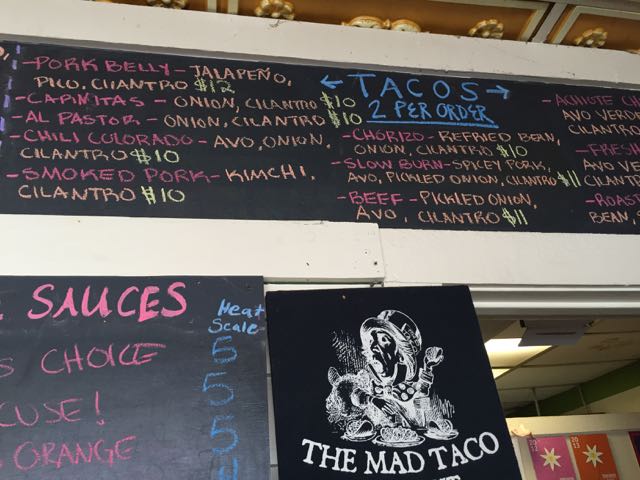 -PORK BELLY-JALAPEÑO,
PICO, CILANTRO $12
-CAPINITAS-ONION, CILANTRO $10
-AL PASTOR-ONION, CILANTRO $10
-CHILI COLORADO-AVO, ONION,
CILANTRO $10
-SMOKED PORK-KIMCHI,
CILANTRO $10
←TACOS→
2 PER ORDER
-CHORIZO-REFRIED BEAN,
ONION, CILANTRO $10
-SLOW BURN-SPICEY PORK,
AVO, PICKLED ONION, CILANTRO $11
-BEEF-PICKLED ONION,
AVO, CILANTRO $11
-ACHIOTE
AVO VERDE
CILANTRO
-FRESH
AVO
CILANT
-ROAST
BEAN,
SAUCES
Heat
Scale
S CHOICE 5
CUSE! 5
ORANGE 5
THE MAD TACO
2012
2013